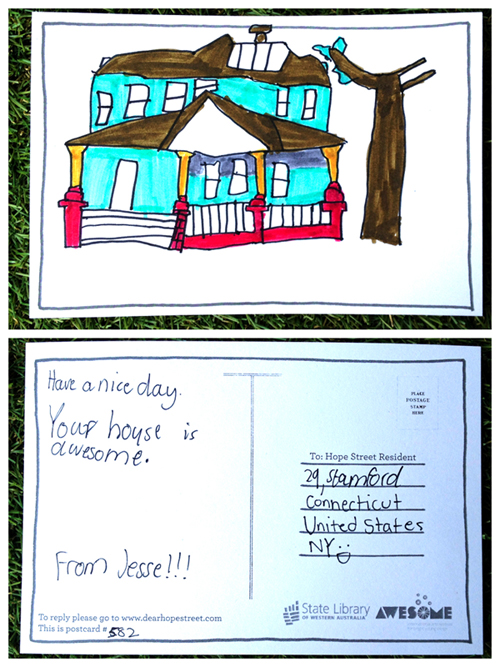 Have a nice day.
Your house is
awesome.
From Jesse!!!
To reply please go to www.dearhopestreet.com
This is postcard # 582
PLACE
POSTAGE
STAMP
HERE
To: Hope Street Resident
29, Stamford
Connecticut
United States
NY
State Library
OF WESTERN AUSTRALIA
AWESOME